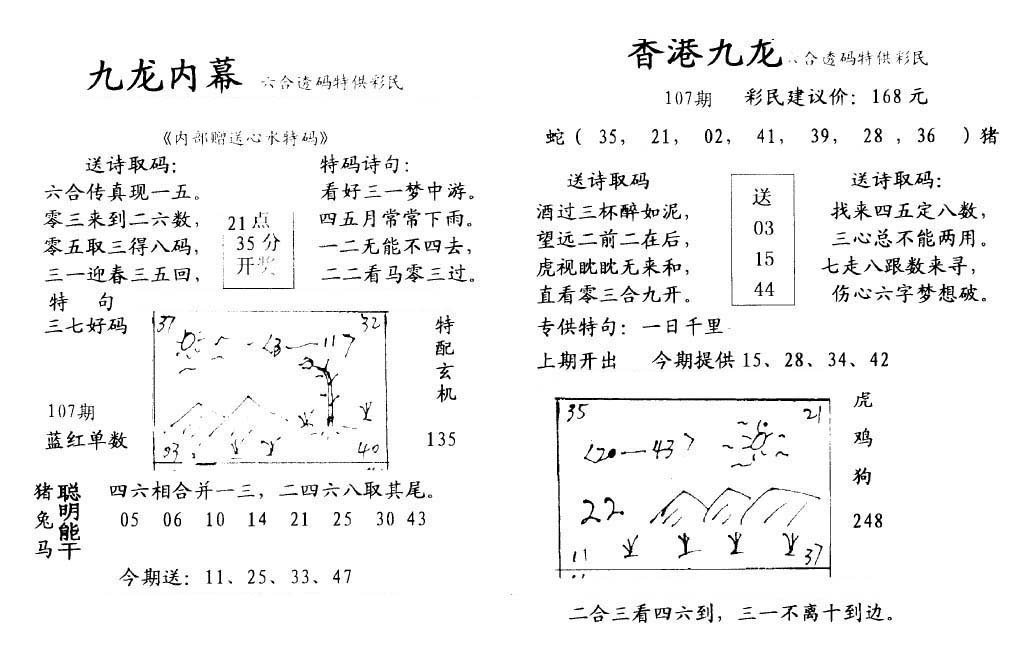 九龙内幕 六合透码特供彩民
《内部赠送心水特码》
送诗取码:
六合传真现一五。
零三来到二六数,
零五取三得八码,
三一迎春三五回,
特 句
三七好码
21点
35分
开奖
特码诗句:
看好三一梦中游。
四五月常常下雨。
一二无能不四去,
二二看马零三过。
37 32
23—11
93 40
特配玄机
135
107期
蓝红单数
猪兔马
聪明能干
四六相合并一三,二四六八取其尾。
05 06 10 14 21 25 30 43
今期送:11、25、33、47
香港九龙 六合透码特供彩民
107期 彩民建议价:168元
蛇( 35, 21, 02, 41, 39, 28 ,36 )猪
送诗取码
酒过三杯醉如泥,
望远二前二在后,
虎视眈眈无来和,
直看零三合九开。
送
03
15
44
送诗取码:
找来四五定八数,
三心总不能两用。
七走八跟数来寻,
伤心六字梦想破。
专供特句:一日千里
上期开出 今期提供15、28、34、42
35 21
20—43
22
11 37
虎
鸡
狗
248
二合三看四六到,三一不离十到边。